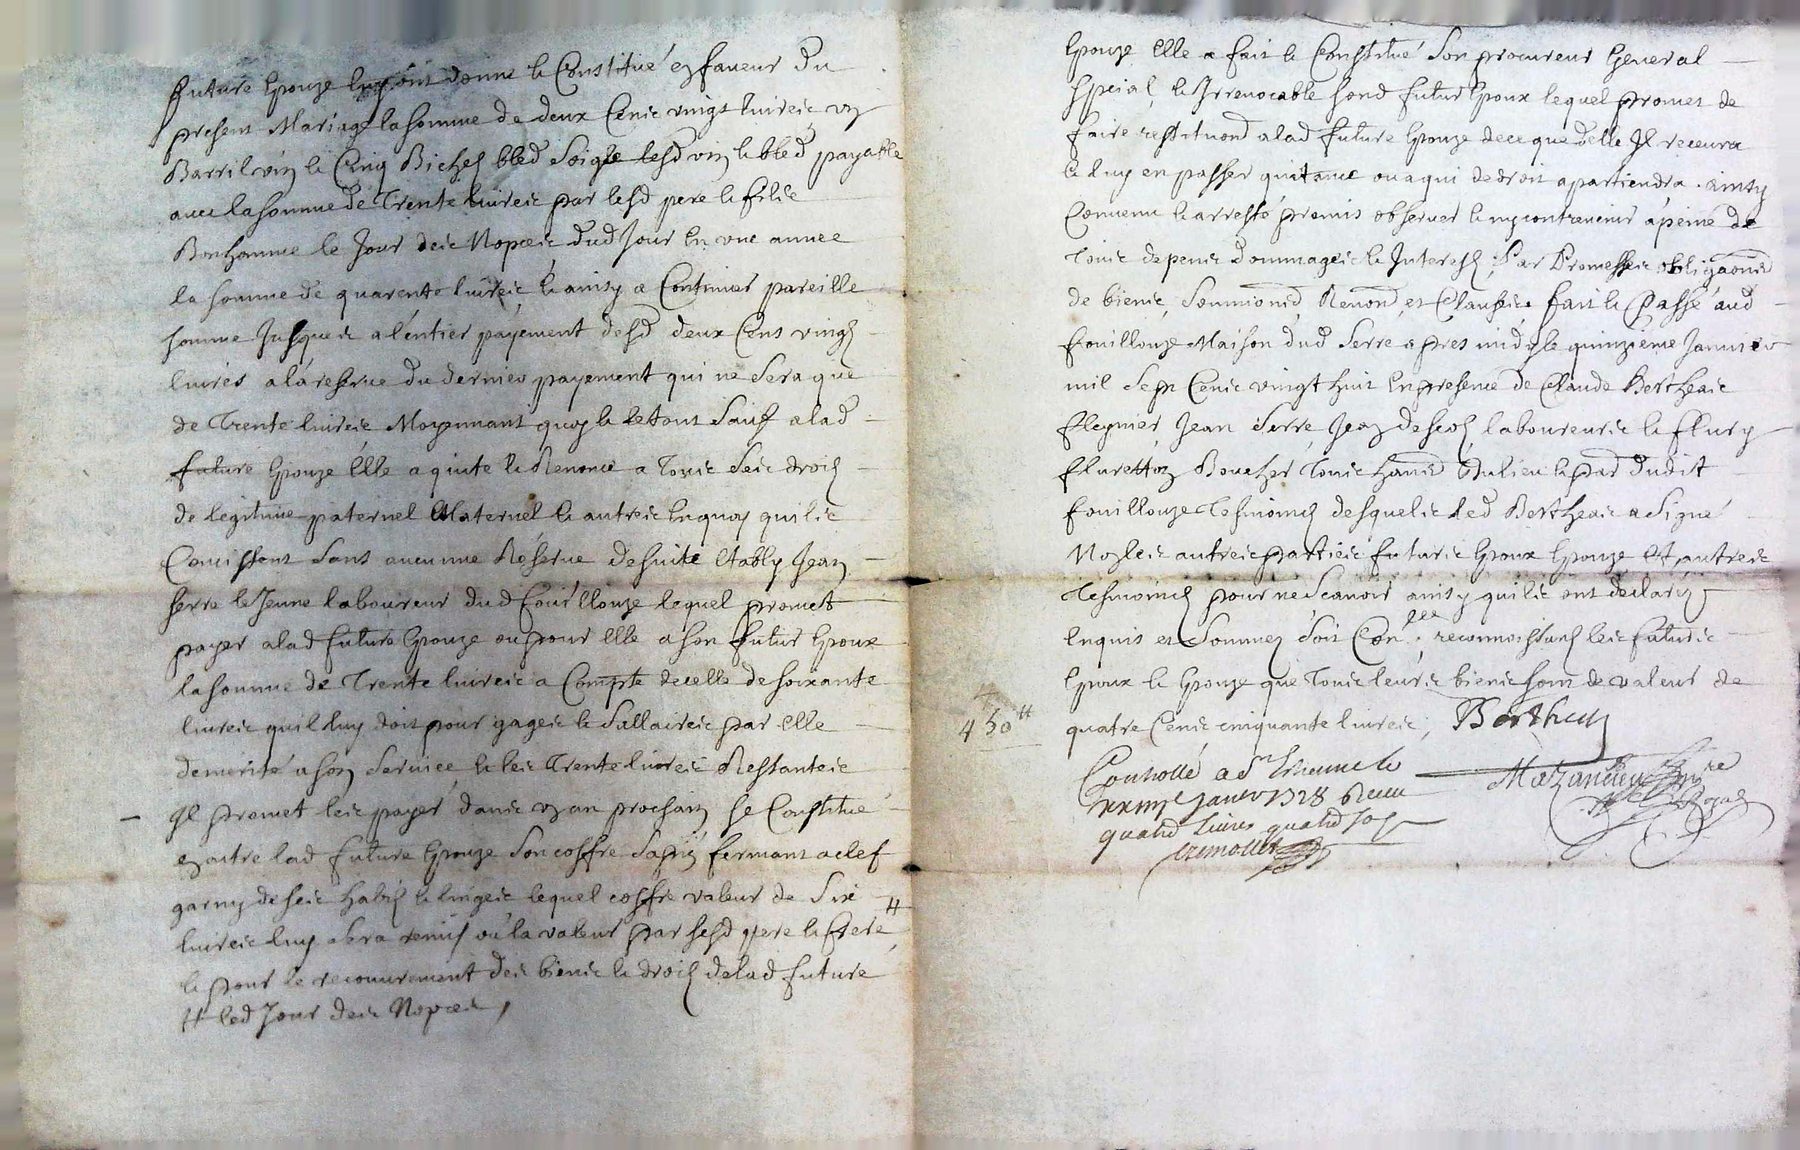 future Epouze luy ont donné & Constitué en faveur du
present Mariage la somme de deux Cents vingt livres un
Barril vin & Cinq Bichets bled Seigle lesd vin & bled payable
avec la somme de Trente livres par lesd pere & fils
Bonhomme le Jour des Nopces dud Jour en une année
la somme de quarente livres & ainsy a Continuer pareille
somme Jusques a l'entier payement desd deux Cents vingt
livres a la reserve du dernier payement qui ne sera que
de Trente livres Moyennant quoy & le tout Sauf a lad
future Epouze Elle a quité & Renoncé a Tous ses droits
de legitime paternel Maternel & autres En quoy quils
Concistent Sans aucunne Réserve de suite Etably Jean
Serre le Jeune laboureur dud fouillouze lequel promet
payer a lad future Epouze ou pour Elle a son futur Epoux
la somme de Trente livres a Compte de celle de soixante
livres quil luy doit pour gages & Sallaires par Elle
demerité a son Service & les Trente livres Restantes
Il promet les payer dans un an prochain Se Constitue
en outre lad future Epouze Son coffre Sapin fermant a clef
garny de ses habits & linges lequel coffre valeur de Six #
livres luy sera remis ou la valeur par lesd pere & frere
& pour le recouvrement des biens & droits de lad future
# led Jour des Nopces,
Epouze Elle a fait & Constitué Son procureur General
Special & Irrevocable sond futur Epoux lequel promet de
faire restitu͠on a lad future Epouze de ce que d'elle Il recevra
& luy en passer quitance ou a qui de droit apartiendra. ainsy
Convenu & arresté promis observer & ny contrevenir a peine de
Tous depens dommages & Interests; Par Promesses obliga͠ons
de biens, Soumi͠ons, Renon͠, et Clauses. fait & Passé aud
fouillouze Maison dud Serre apres midy le quinzieme Janvier
mil Sept Cents vingt huit En presence de Claude Bertheas
Jean Serre Jean laboureurs & fleury
flurettoz Boucher Tous du lieu & par dudit
fouillouze Tesmoins desquels led Bertheas a Signé
Non les autres parties futurs Epoux Epouze Et autres
Tesmoins pour ne Scavoir ainsy quils ont déclaré
Enquis et Sommez Soit Con.lée; reconnoissants les futurs
Epoux & Epouze que Tous leurs biens sont de valeur de
450# quatre Cents cinquante livres, Bertheas
Controllé a St Etienne le
janvr 1728 Receu
quatre Livres quatre sols